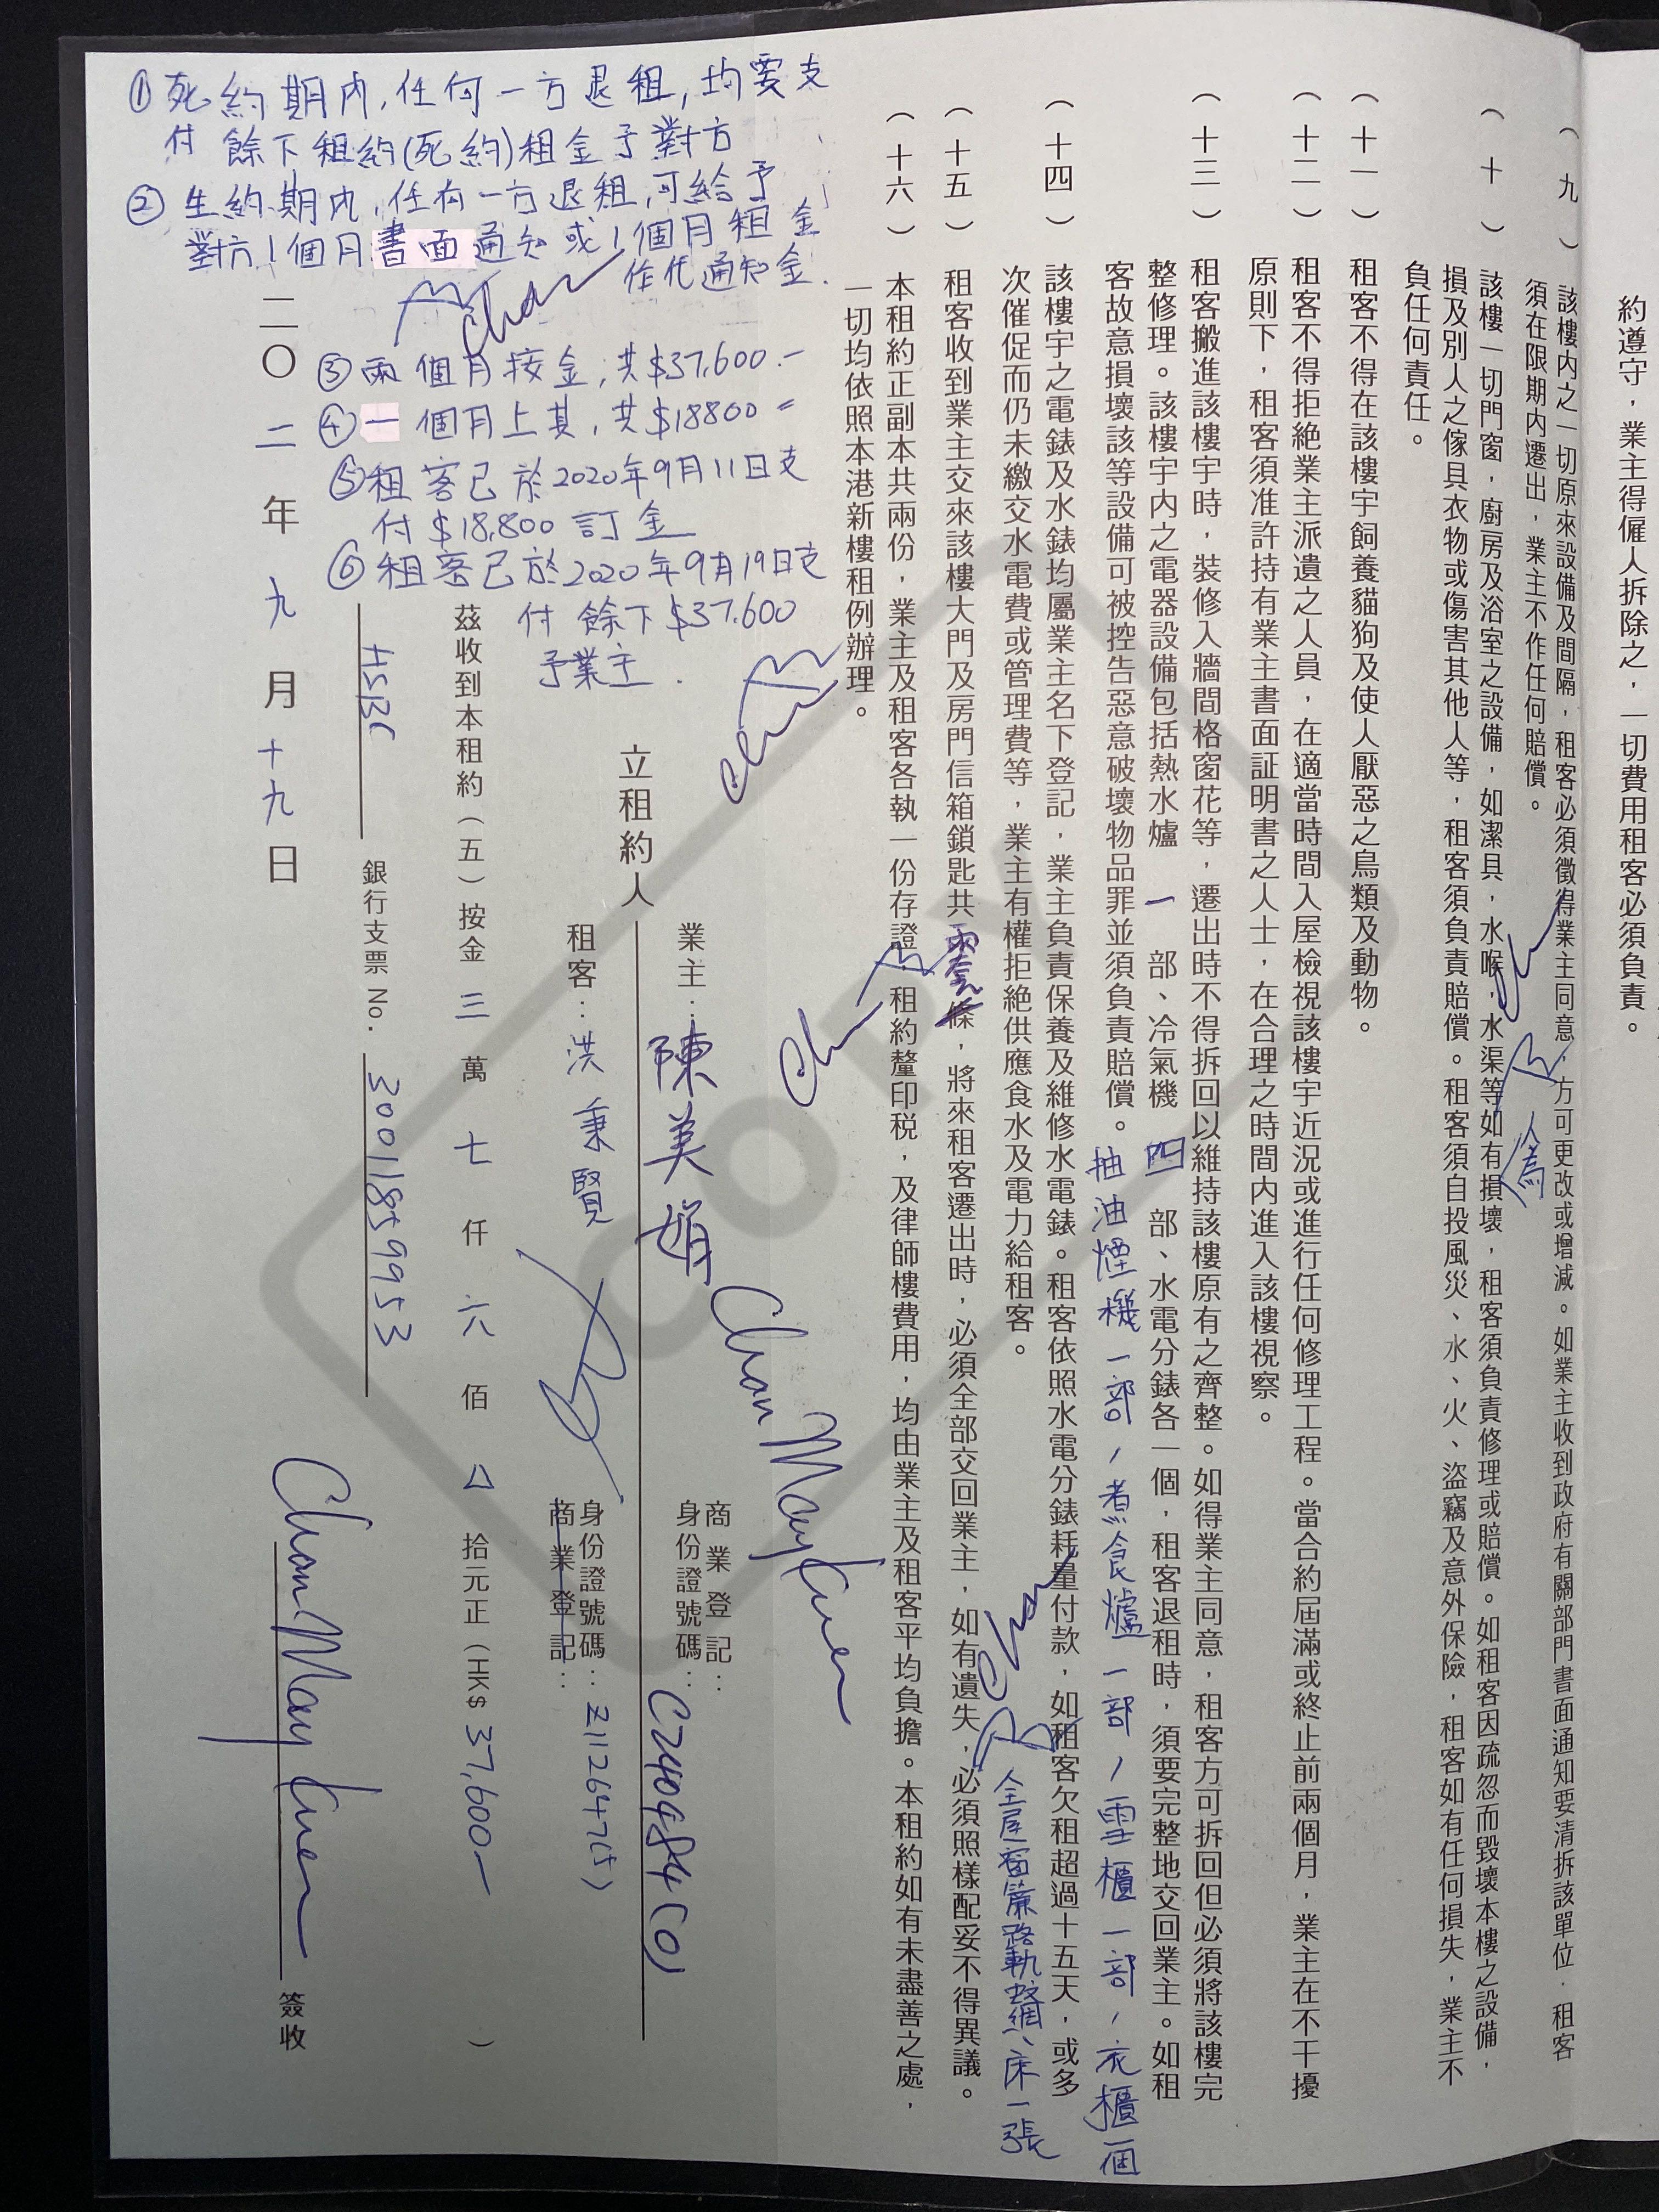 約遵守，業主得僱人拆除之，一切費用租客必須負責。
（九）該樓內之一切原來設備及間隔，租客必須徵得業主同意，方可更改或增減。如業主收到政府有關部門書面通知要清拆該單位，租客
須在限期內遷出，業主不作任何賠償。
人為
（十）該樓一切門窗，廚房及浴室之設備，如潔具，水喉，水渠等如有損壞，租客須負責修理或賠償。如租客因疏忽而毀壞本樓之設備，
損及別人之傢具衣物或傷害其他人等，租客須負責賠償。租客須自投風災、水、火、盜竊及意外保險，租客如有任何損失，業主不
負任何責任。
（十一）租客不得在該樓宇飼養貓狗及使人厭惡之鳥類及動物。
（十二）租客不得拒絕業主派遣之人員，在適當時間入屋檢視該樓宇近況或進行任何修理工程。當合約屆滿或終止前兩個月，業主在不干擾
原則下，租客須准許持有業主書面証明書之人士，在合理之時間內進入該樓視察。
（十三）租客搬進該樓宇時，裝修入牆間格窗花等，遷出時不得拆回以維持該樓原有之齊整。如得業主同意，租客方可拆回但必須將該樓完
整修理。該樓宇內之電器設備包括熱水爐 一 部、冷氣機 四 部、水電分錶各一個，租客退租時，須要完整地交回業主。如租
客故意損壞該等設備可被控告惡意破壞物品罪並須負責賠償。抽油煙機一部，煮食爐一部，雪櫃一部，衣櫃一個
（十四）該樓宇之電錶及水錶均屬業主名下登記，業主負責保養及維修水電錶。租客依照水電分錶耗量付款，如租客欠租超過十五天，或多
次催促而仍未繳交水電費或管理費等，業主有權拒絕供應食水及電力給租客。
Chan
全屋窗簾路軌、床一張
（十五）租客收到業主交來該樓大門及房門信箱鎖匙共兩套條，將來租客遷出時，必須全部交回業主，如有遺失，必須照樣配妥不得異議。
（十六）本租約正副本共兩份，業主及租客各執一份存證，租約釐印税，及律師樓費用，均由業主及租客平均負擔。本租約如有未盡善之處，
一切均依照本港新樓租例辦理。
①死約期內，任何一方退租，均要支
付餘下租約(死約)租金予對方
②生約期內，任何一方退租，可給予
對方1個月書面通知或1個月租金
作代通知金.
Chan
③兩個月按金，共$37,600.-
④一個月上期，共$18800=
⑤租客已於2020年9月11日支
付$18,800訂金
⑥租客已於2020年9月19日支
付餘下$37,600
予業主.
立租約人
業主：陳美娟 Chan May Kuen
商業登記
身份證號碼：C240984(0)
租客：洪秉賢
身份證號碼：Z112647(5)
商業登記：
茲收到本租約（五）按金 三 萬 七 仟 六 佰 拾元正（HK$ 37,600—）
HSBC 銀行支票 No. 300118599953
二〇二 年 九 月 十九 日
Chan May Kuen 簽收
COPY